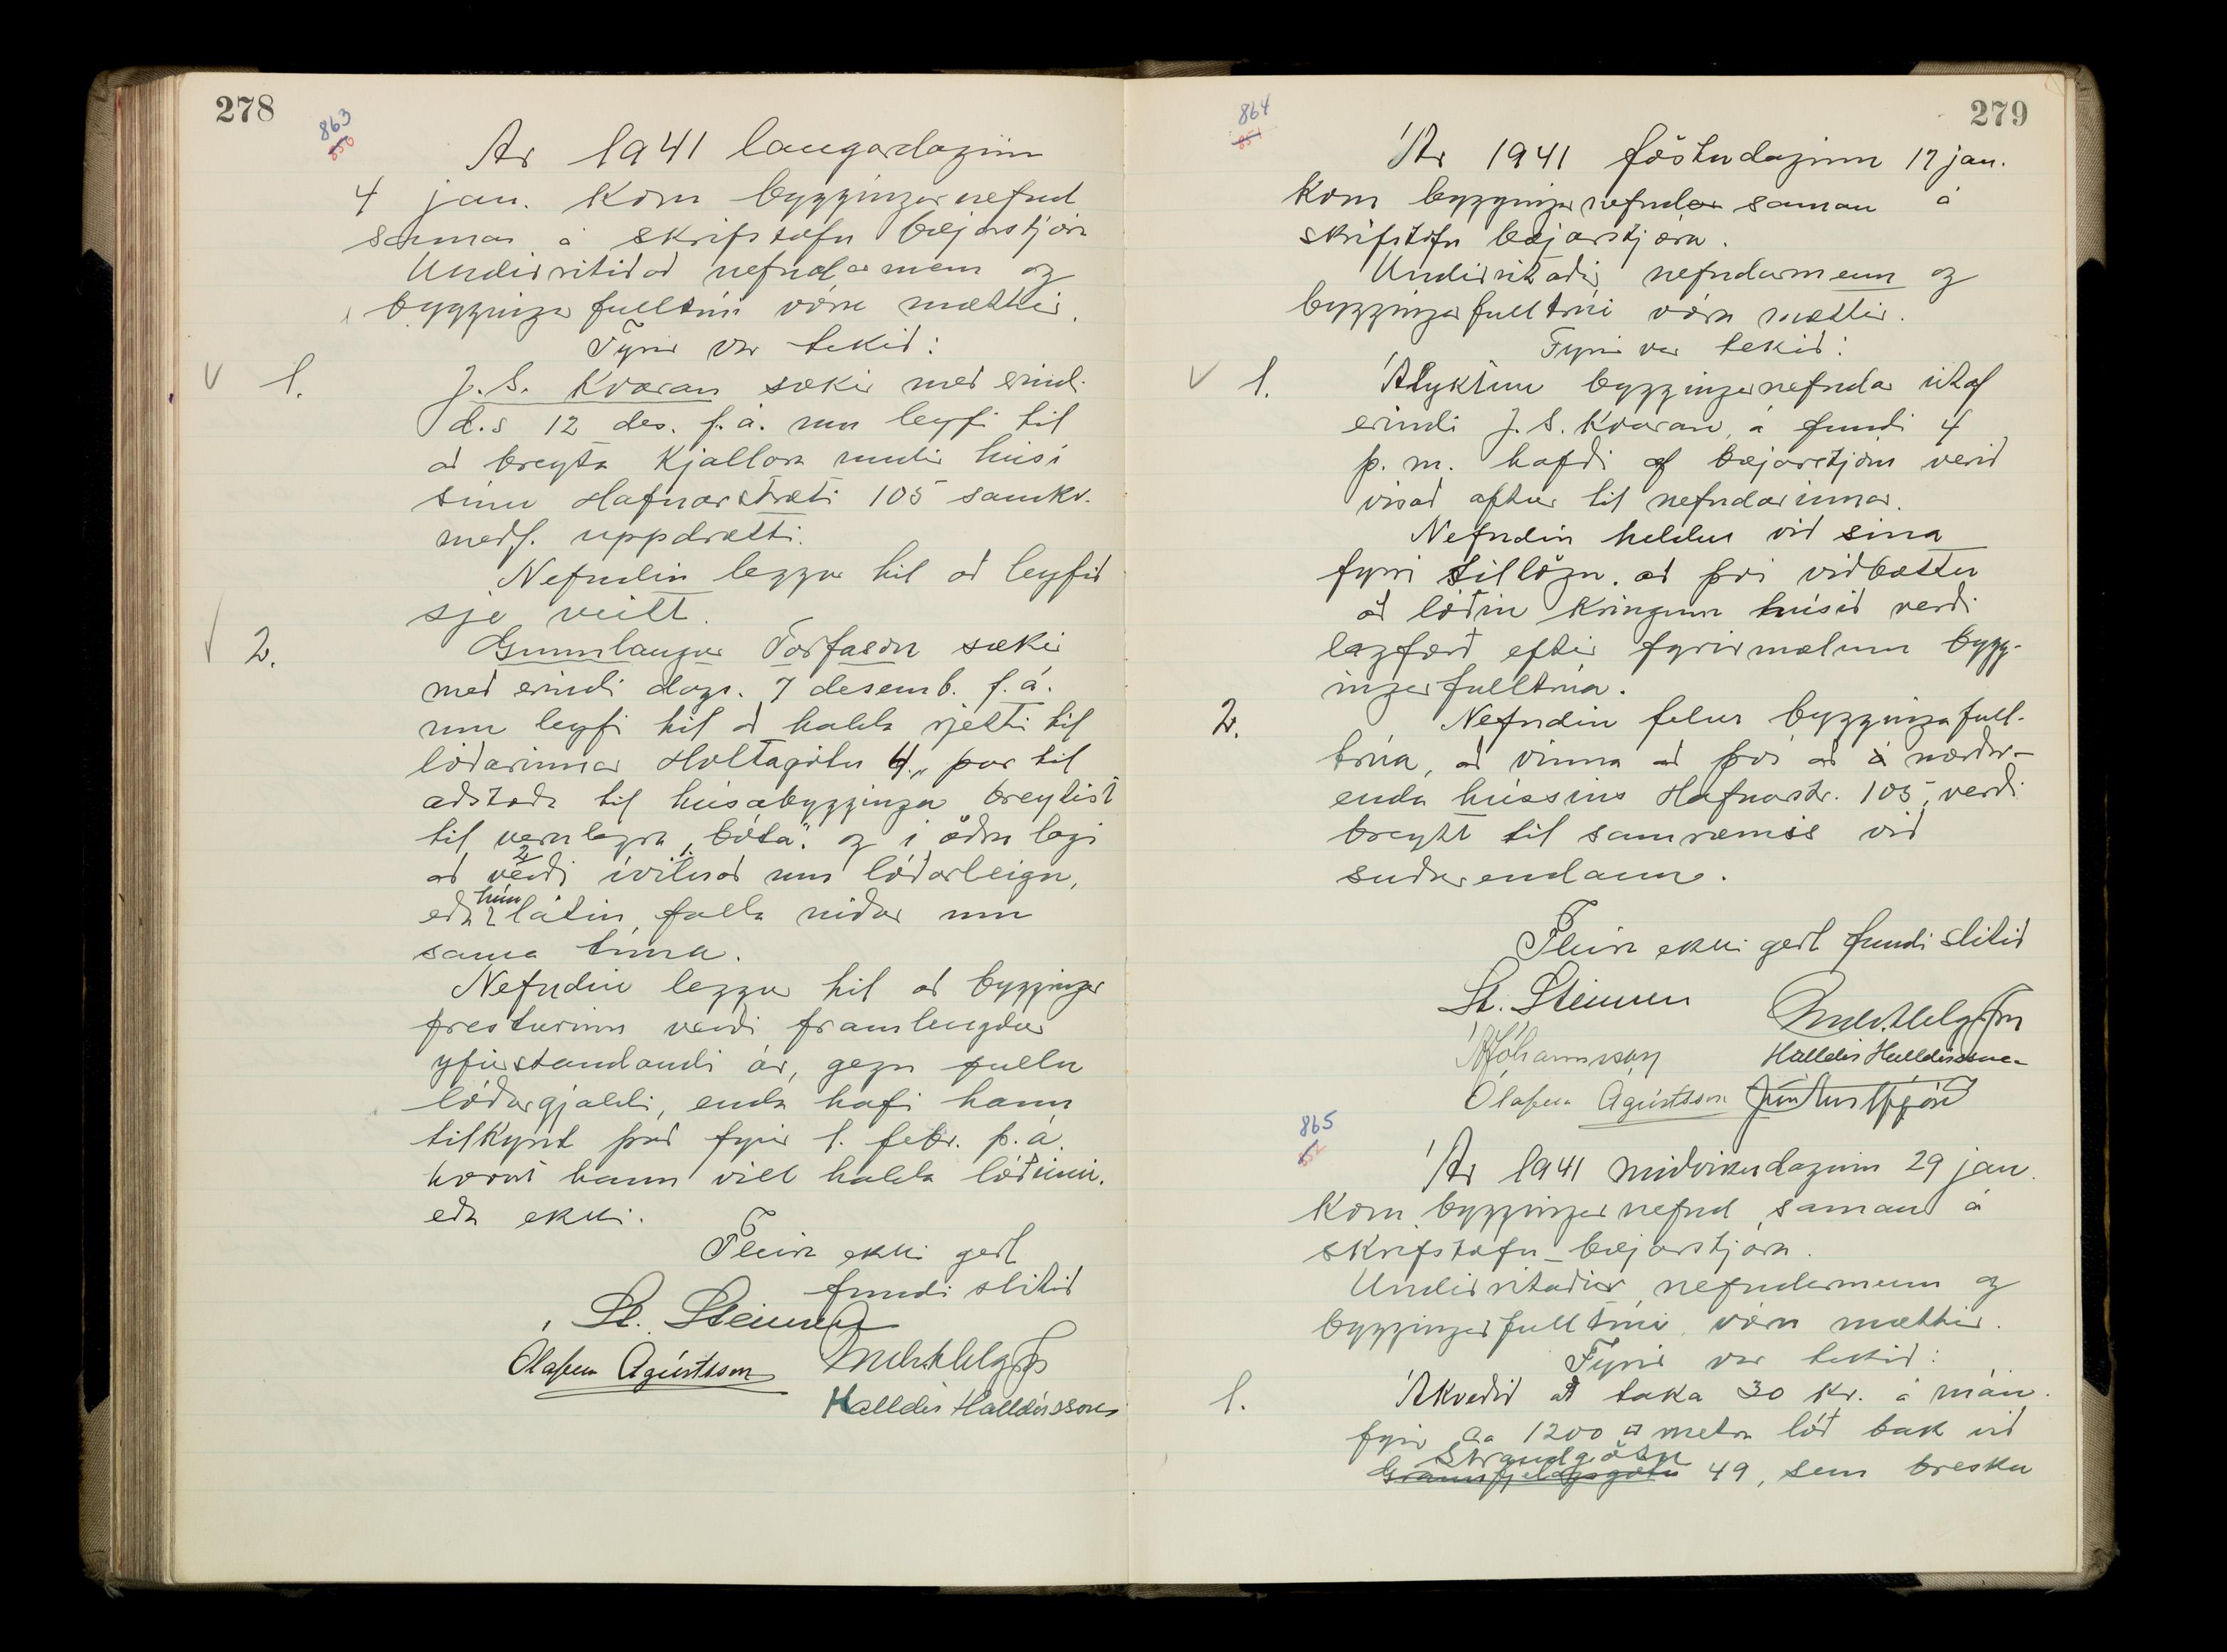 278
863
850
Ár 1941 laugardaginn
4 jan. kom byggingarnefnd
saman á skrifstofu bæjarstjóra
Undirritaðad nefndarmenn og
bygginga fulltrúi vóru mættir.
Fyrir var tekið:
1. J. S. Kvaran sækir með erindi
d.s 12 des. f.á. um leyfi til
að breyta kjallara undir húsi
sínu Hafnarstræti 105 samkv.
meðf. uppdrætti.
Nefndin leggur til að leyfið
sje veitt.
2. Gunnlaugur Torfason sækir
með erindi dags. 7 desemb. f.á.
um leyfi til að halda rjetti til
lóðarinnar Holtagötu 4., þar til
aðstaða til húsabygginga breytist
til verulegra „bóta“. og í öðru lagi
að verði ívilnað um lóðarleigu,
eða hún látin falla niður um
sama tíma.
Nefndin leggur til að bygginga
fresturinn verði framlengdur
yfirstandandi ár, gegn fullu
lóðargjaldi, enda hafi hann
tilkynt það fyrir 1. febr. þ.á.
hvort hann vill halda lóðinni.
eða ekki.
Fleira ekki gert
fundi slitið
St. Steinsen
Ólafur Ágústsson
Halldór Halldórsson
279
864
851
Ár 1941 föstudaginn 17 jan.
kom byggingarnefndar saman á
skrifstofu bæjarstjóra.
Undirritaðir nefndarmenn og
byggingarfulltrúi vóru mættir.
Fyrir var tekið:
1. Ályktun byggingarnefndar útaf
erindi J. S. Kvaran, á fundi 4
þ.m. hafði af bæjarstjórn verið
vísað aftur til nefndarinnar.
Nefndin heldur við sína
fyrri tillögu. að því viðbættu
að lóðin kringum húsið verði
lagfærð eftir fyrirmælum bygg-
ingarfulltrúa.
2. Nefndin felur bygginga full-
trúa, að vinna að því að á norður-
enda hússins Hafnarstr. 105, verði
breytt til samræmis við
suðurendann.
Fleira ekki gert fundi slitið
St. Steinsen
Jóhannsson Halldór Halldórsson
Ólafur Ágústsson
865
852
Ár 1941 miðvikudaginn 29 jan.
kom byggingarnefnd saman á
skrifstofu bæjarstjóra.
Undirritaðir nefndarmenn og
byggingarfulltrúi vóru mættir.
Fyrir var tekið:
1. Ákveðið að taka 30 kr. á mán.
fyrir ca 1200 □ metra lóð bak við
Strandgötu
Grannfjelagsgötu 49, sem bresku